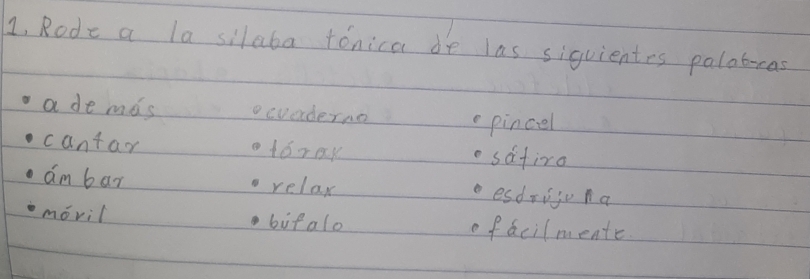 1. Rode a la sílaba tónica de las siguientes palabras
• además • cuaderno • pincel
• cantar • tórax • sátira
• ámbar • relax • esdrújula
• móvil • búfalo • fácilmente